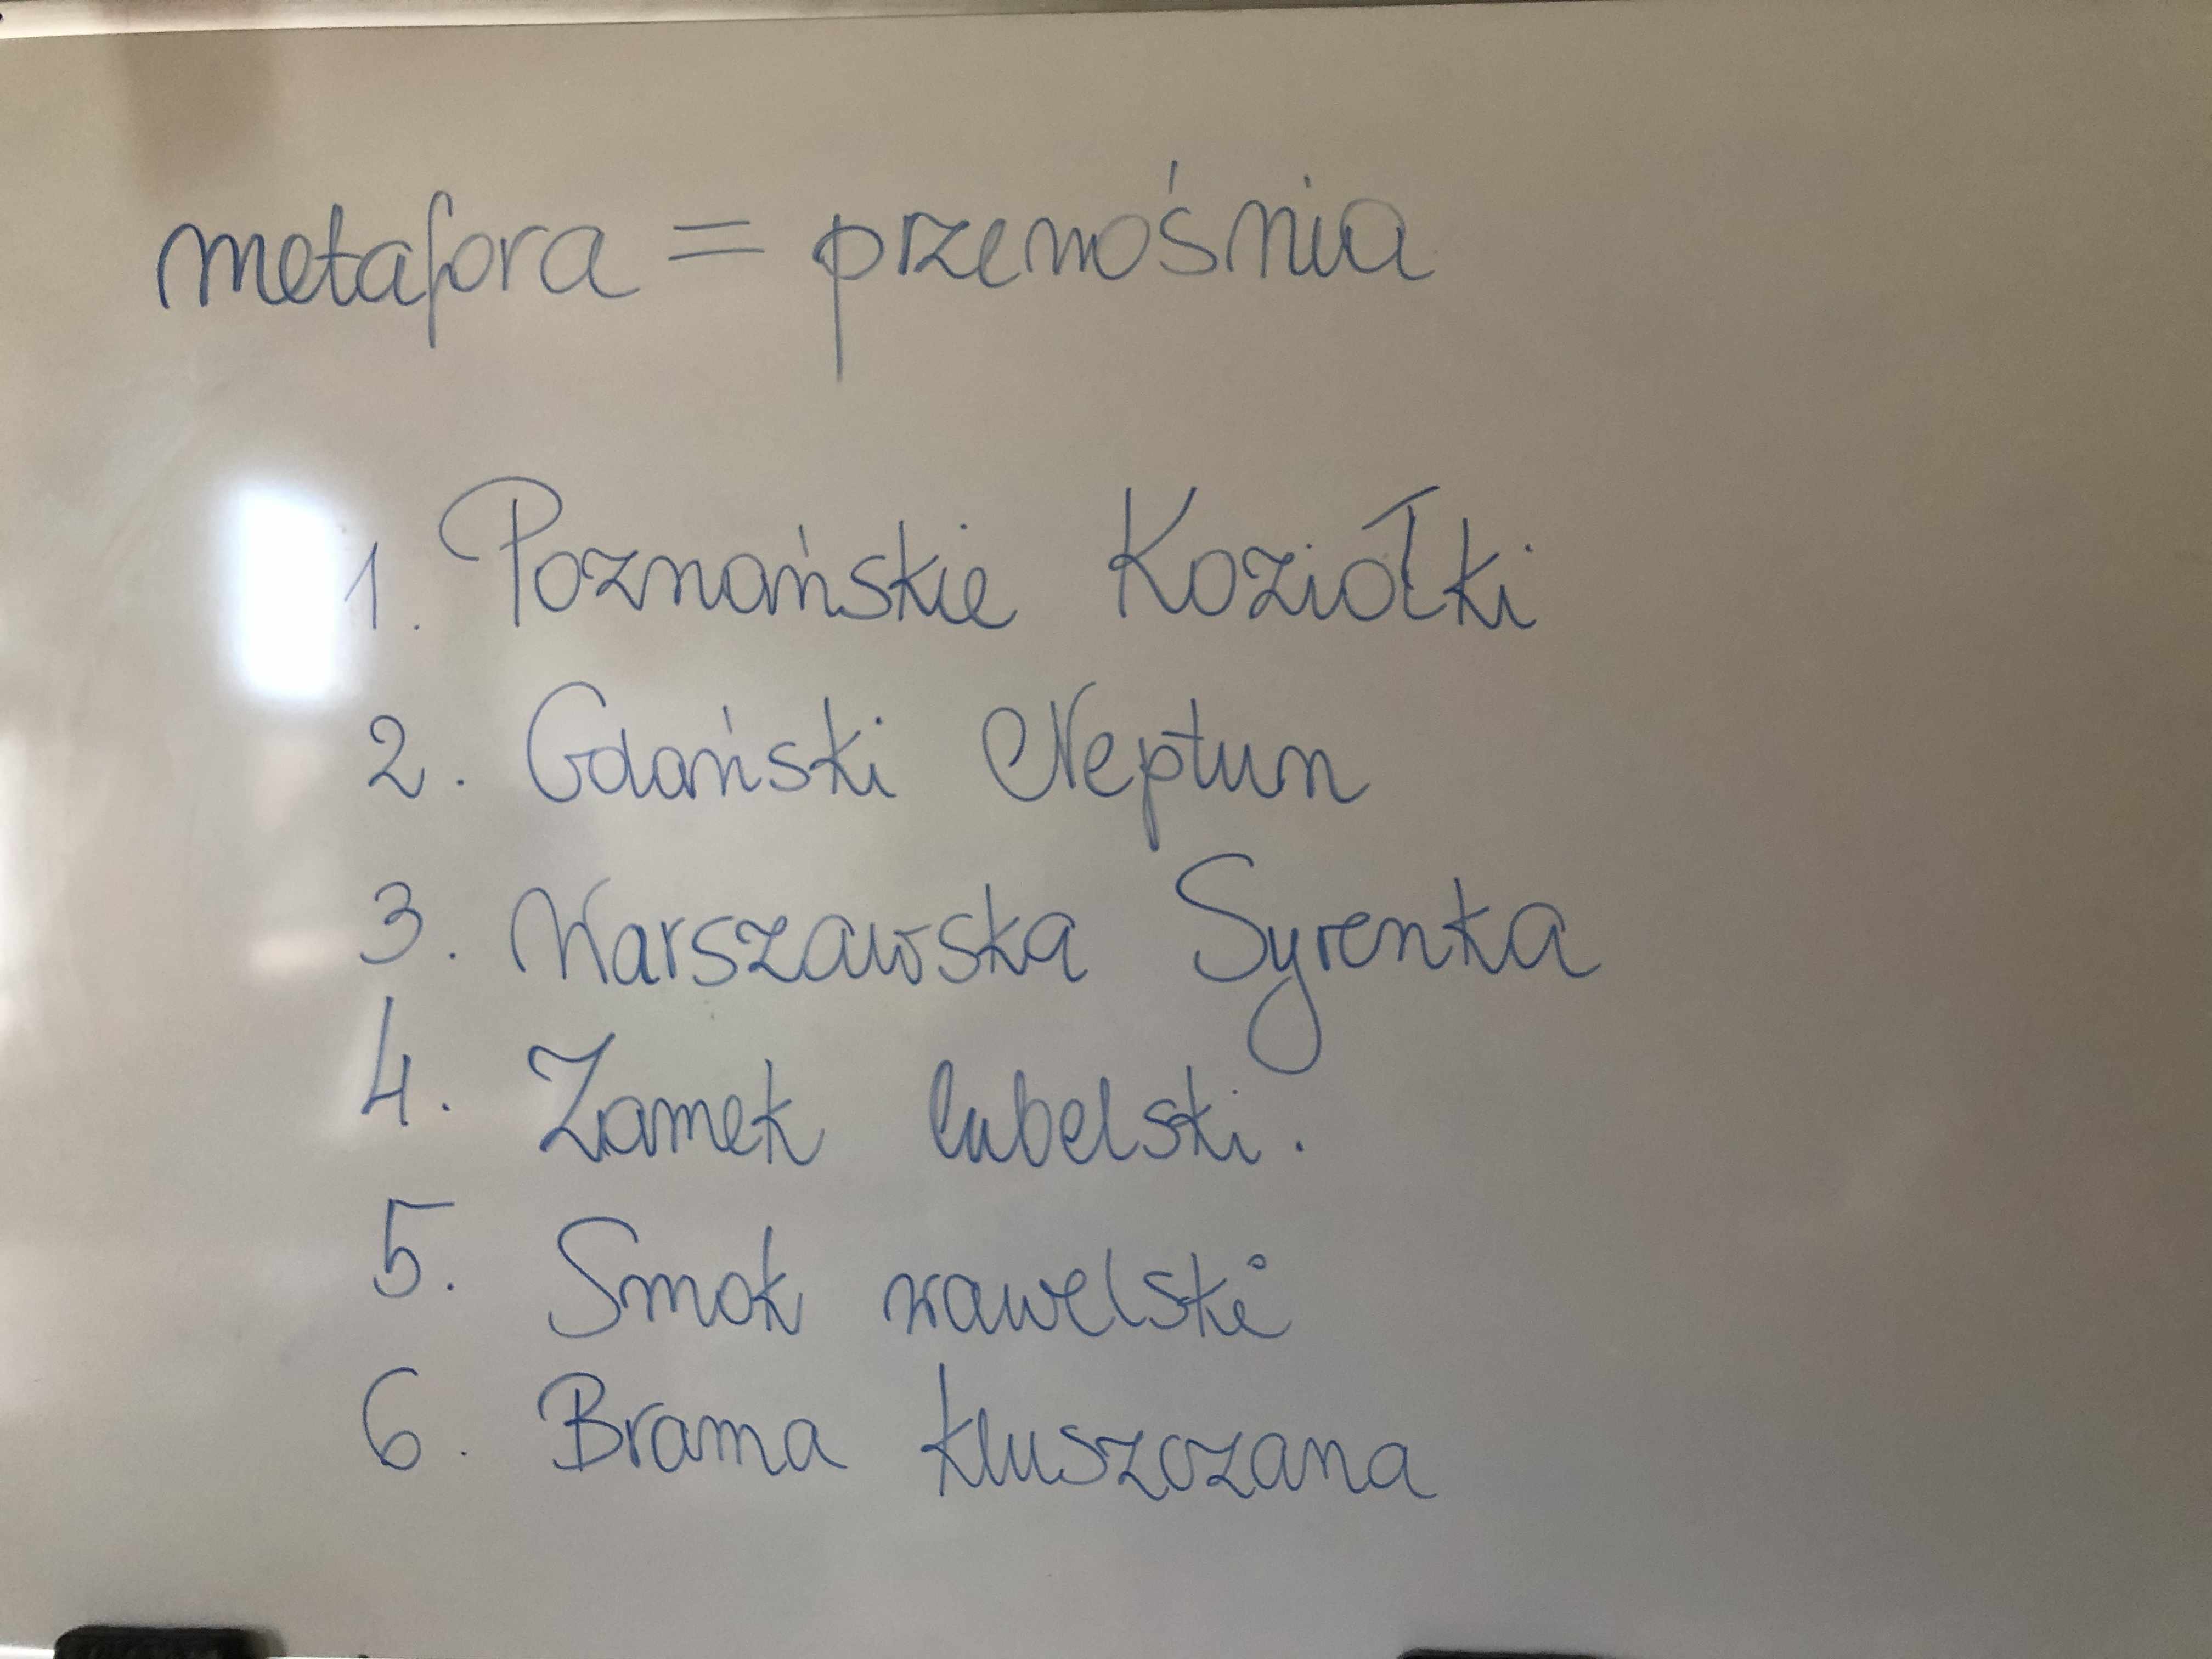 metafora = przenośnia
1. Poznańskie Koziołki
2. Gdański Neptun
3. Warszawska Syrenka
4. Zamek lubelski.
5. Smok wawelski
6. Brama kluszczana